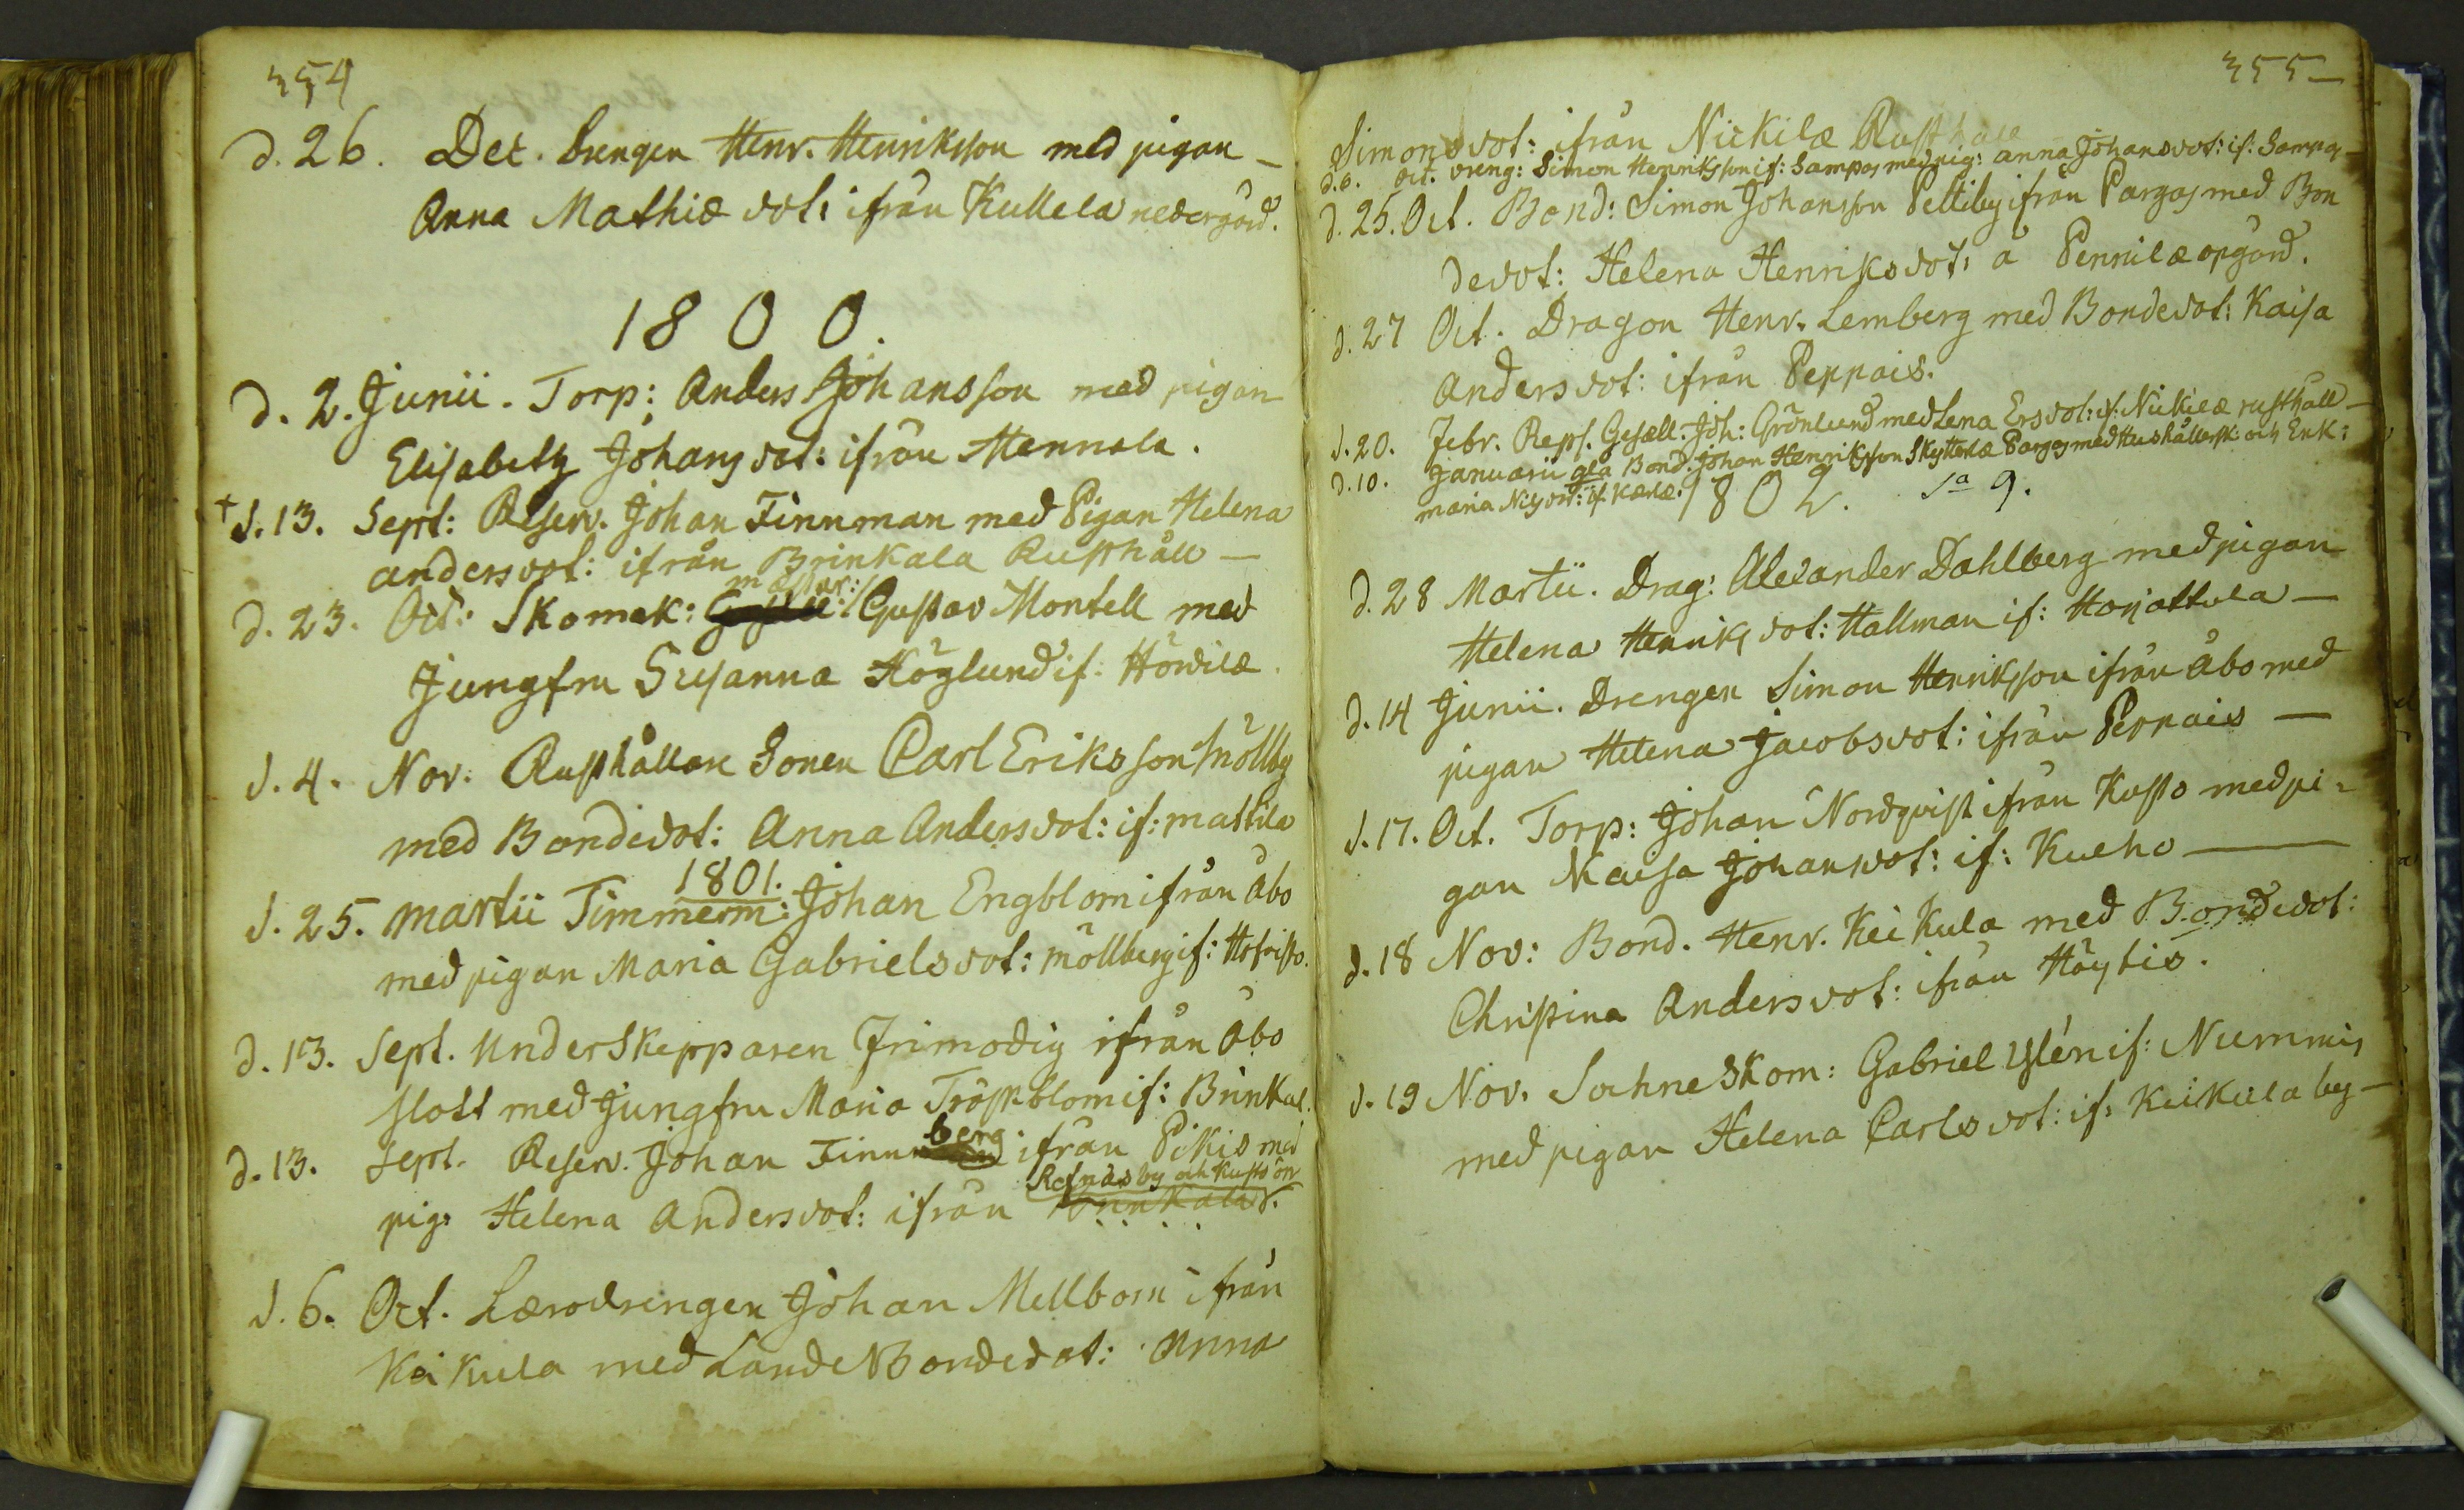 354
d. 26. Dec. Drengen Henr. Henriksson med pigan —
Anna Mathiæ dot: ifrån Kullela nedergård.
1800.
d. 2. Junii. Torp: Anders Johansson med pigan
Elisabeth Johans dot: ifrån Hennala.
+ d. 13. Sept: Reserv. Johan Finnman med Pigan Helena
andersdot: ifrån Brinkala Rusthåll —
mästar:
d. 23. Oct: Skomak: Gesell: Gustav Montell med
Jungfru Susanna Höglund if. Höwilæ.
d. 4. Nov. Rusthållare Sonen Carl Eriksson Möllby
med Bondedot: Anna Andersdot: if: mattila
1801.
d. 25. martii Timmerm: Johan Engblom ifrån Åbo
med pigan Maria Gabrielsdot: Möllberg if:
d. 13. Sept. Underskepparen Frimodig ifrån Åbo
slott med Jungfru Maria if: Brinkal.
berg
d. 13. Sept. Reserv. Johan Finnman ifrån Pikis med
Refnäs by och Kustö ön
pig: Helena Andersdot: ifrån Brinkala.
d. 6. Oct. Lærodrengen Johan Mellbom ifrån
Keikula med LandBondedot: Anna
355
Simonsdot: ifrån Nickilæ Rusthåll
d. 6. Oct. Dreng: Simon Henriksson if: Sampas med pig: Anna Johansdot: if: Sampas —
d. 25. Oct. Bond: Simon Johansson Peltiby ifrån Pargas med Bon
dedot: Helena Henriksdot: å Pennilæ opgård.
d. 27 Oct. Dragon Henr. Lemberg med Bondedot: Kaisa
Andersdot: ifrån Peppois.
d. 20. Febr. Reps. Gesæll. Joh: Grönlund med Lena Ersdot: if: Nickilæ rusthåll —
d. 10. Januarii gla Bond. Johan Henriksson Skytterlæ Pargas med Hushållersk: och Enk:
maria Nilsdot: if.
1802. Sa 9.
d. 28 Martii. Drag: Alexander Dahlberg med pigan
Helena Henriks dot: Hallman if: Harjattula —
d. 14 Junii. Drengen Simon Henriksson ifrån Åbo med
pigan Helena Jacobsdot: ifrån Peppois —
d. 17. Oct. Torp: Johan Nordqvist ifrån Kustö med pi-
gan Kaisa Johansdot: if: Kueho —
d. 18 Nov: Bond. Henr. Keikula med Bondedot:
Christina Andersdot: ifrån Höytis.
d. 19 Nov. Sochne Skom: Gabriel Ylén if: Nummis
med pigan Helena Carlsdot: if: Keikula by —